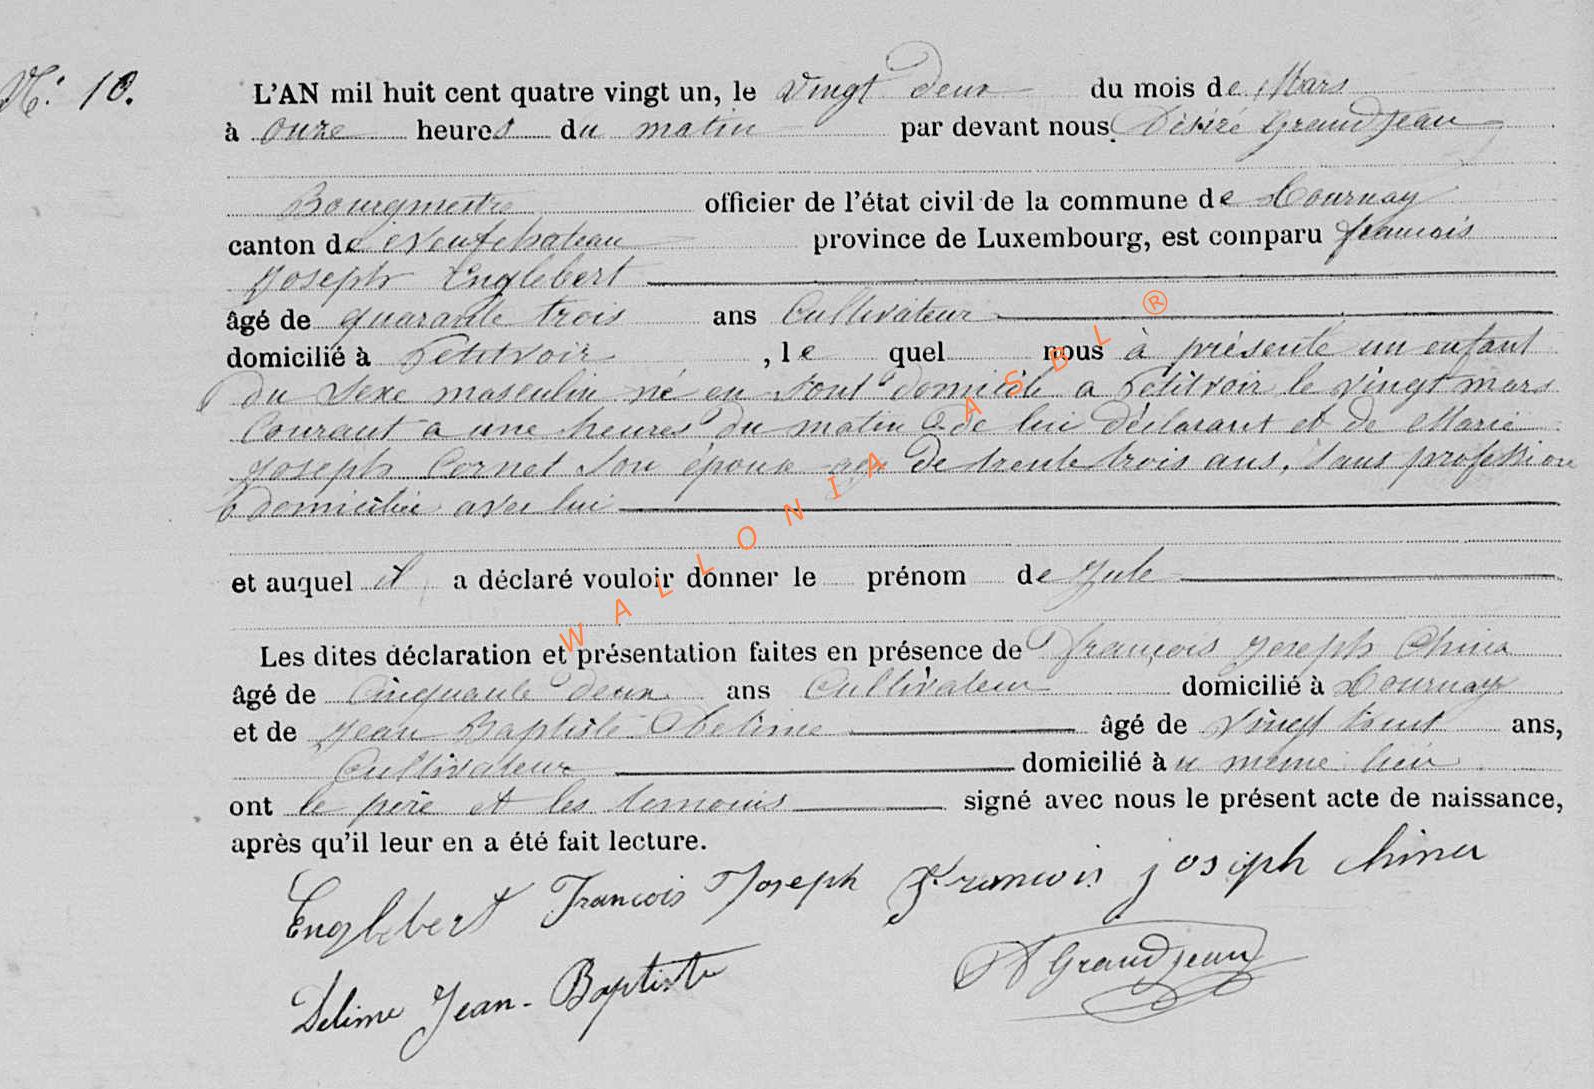 N° 10.
L'AN mil huit cent quatre vingt un, le vingt deux du mois de Mars
à onze heures du matin par devant nous Désiré Grandjean
Bourgmestre officier de l'état civil de la commune de Tournay
canton de Neufchateau province de Luxembourg, est comparu francois
Joseph Englebert
âgé de quarante trois ans Cultivateur
domicilié à Petitvoir, le quel nous à présenté un enfant
du sexe masculin né en sont domicile a Petitvoir le vingt mars
Courant a une heures du matin de lui déclarant et de Marie
Joseph Cornet son épouse agé de trente trois ans, sans profession
domiciliée avec lui
et auquel il a déclaré vouloir donner le prénom de Jule
Les dites déclaration et présentation faites en présence de françois Joseph China
âgé de Cinquante deux ans Cultivateur domicilié à Tournay
et de Jean Baptiste Deline âgé de vingt ans,
Cultivateur domicilié àu même lieu
ont le père et les temouis signé avec nous le présent acte de naissance,
après qu'il leur en a été fait lecture.
Englebert Francois Joseph Francois joseph
Deline Jean-Baptiste Grandjean
WALLONIA ASBL ®